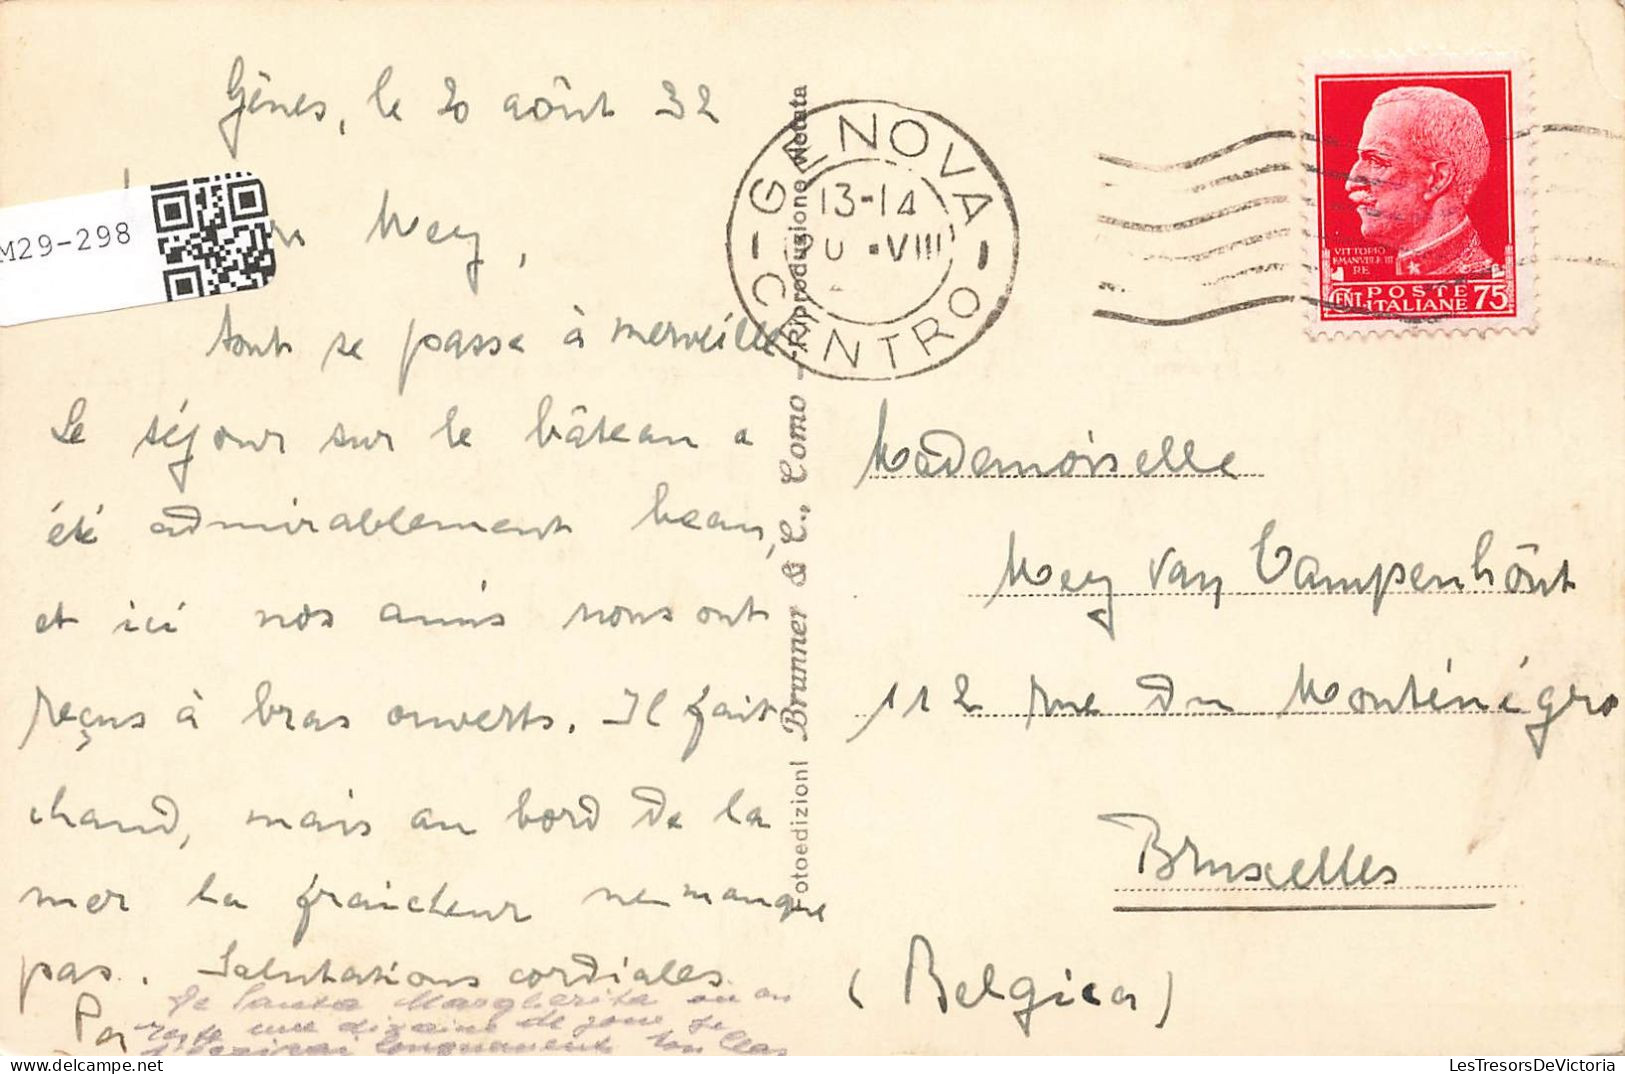 Gênes, le 20 août 32
M29-298
Mey,
tout se passe à merveille
Le séjour sur le bâteau a
été admirablement beau,
et ici nos amis nous ont
reçus à bras ouverts. Il fait
chaud, mais au bord de la
mer la fraicheur ne manque
pas. Salutations cordiales.
De Santa Margherita où on
reste une dizaine de jours je
longuement
Fotoedizioni Brunner & C., Como - Riproduzione Vietata
GENOVA
13-14
20.VIII
CENTRO
VITTORIO
EMANVELE III
RE
CENT. POSTE 75
ITALIANE
Mademoiselle
Mey van Campenhôut
112 rue du Monténégro
Bruxelles
(Belgica)
LesTresorsDeVictoria